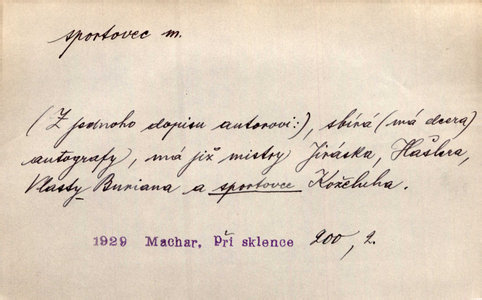 sportovec m.
(Z jednoho dopisu autorovi:), sbírá (má dcera)
autografy, má již mistry Jiráska, Hašlera,
Vlasty Buriana a sportovce Koželuha.
1929 Machar, Při sklence 200, 2.